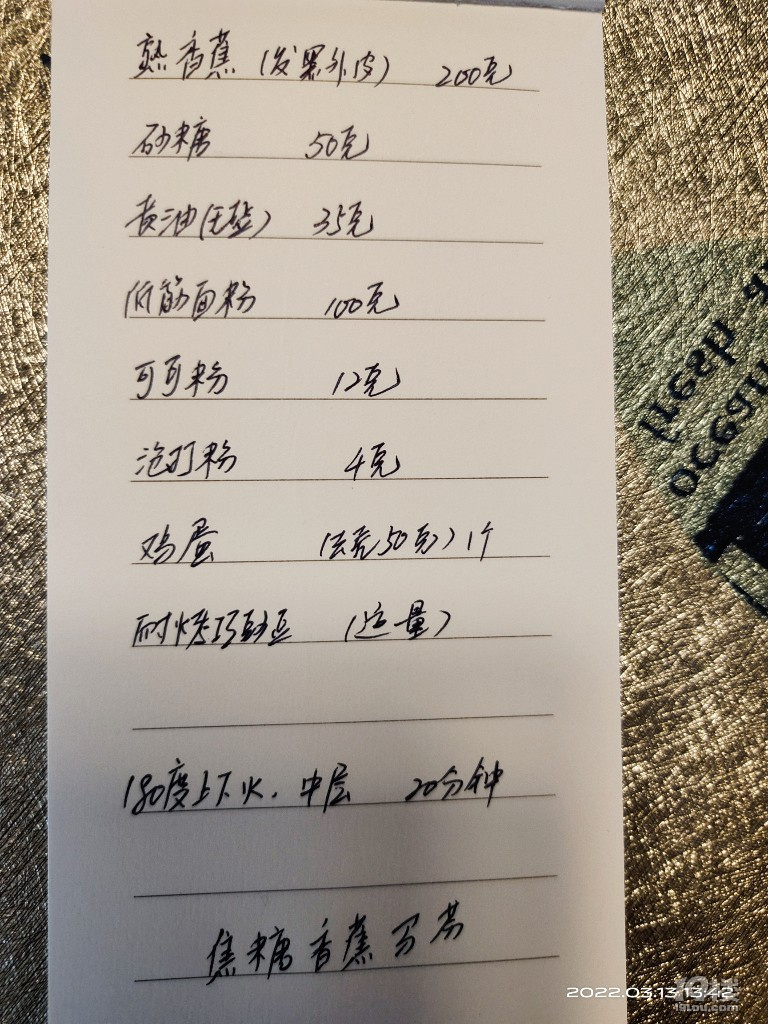 熟香蕉（发黑外皮） 200克
砂糖 50克
黄油（无盐） 35克
低筋面粉 100克
可可粉 12克
泡打粉 4克
鸡蛋 （去壳50克）1个
耐烤巧克力豆 （适量）
180度上下火.中层 20分钟
焦糖香蕉马芬
2022.03.13 13:42
19lou.com